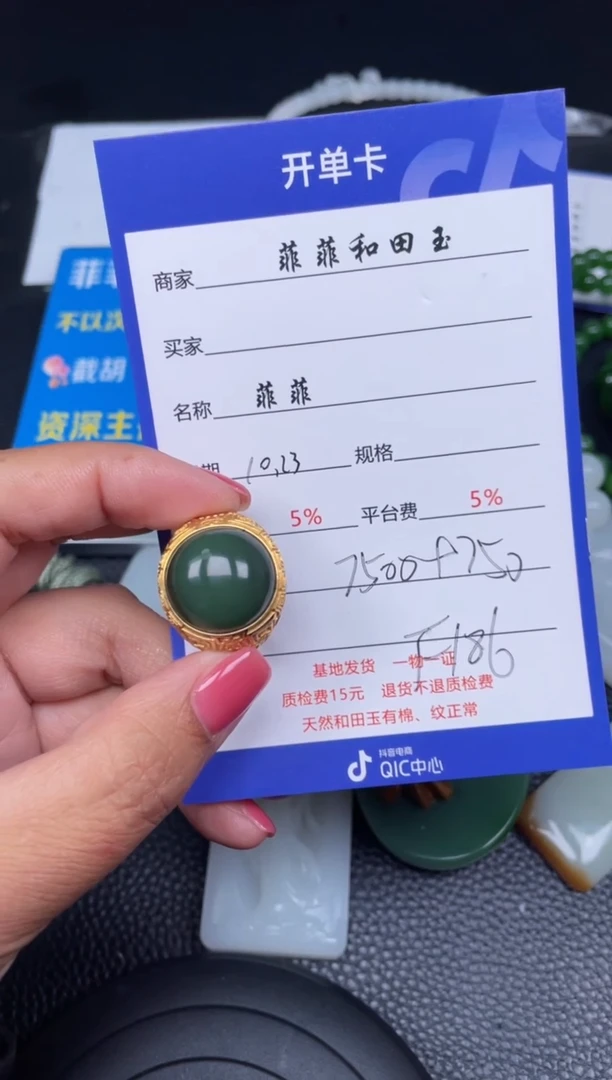 开单卡
商家 菲菲和田玉
买家
名称 菲菲
期 10.23 规格
5% 平台费 5%
7500+750
F186
基地发货 一物一证
质检费15元 退货不退质检费
天然和田玉有棉、纹正常
抖音电商
QIC中心
菲
不以次
截胡
资深主